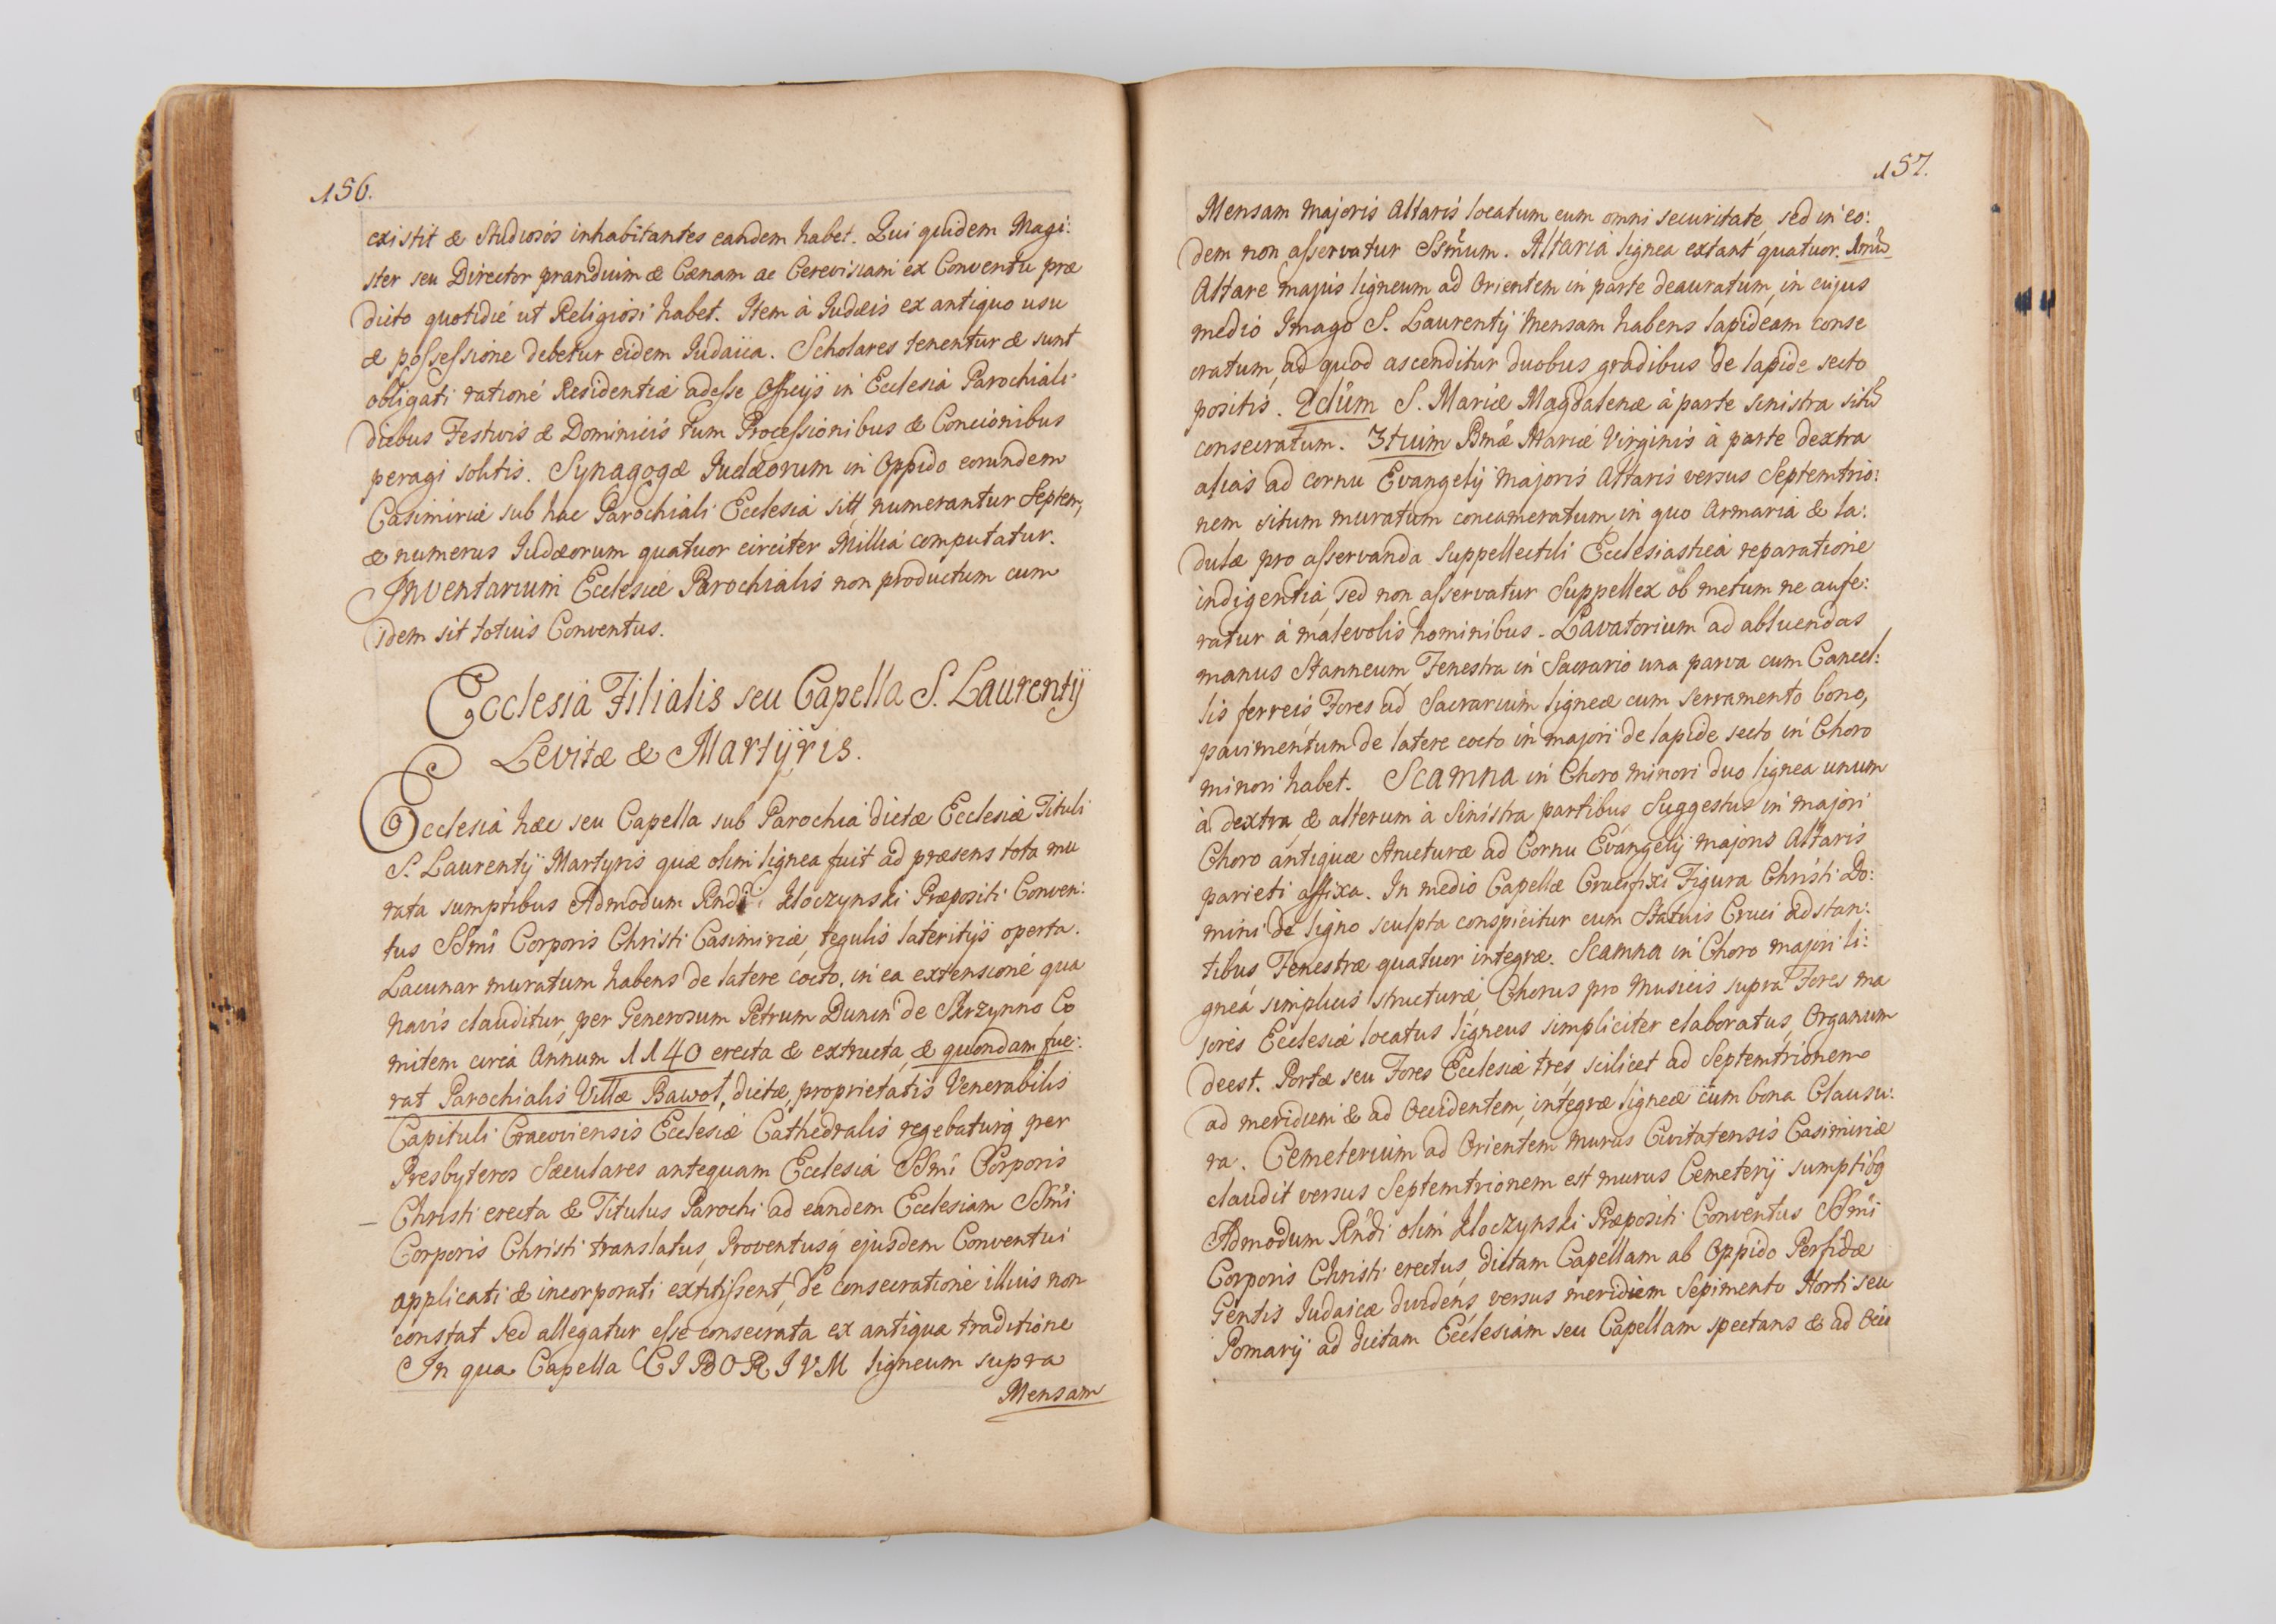 156.
existit & Studiosos inhabitantes eandem habet. Qui quidem Magi:
ster seu Director prandium & Cænam ac Cerevisiam ex Conventu præ
dicto quotidie ut Religiosi habet. Item à Judæis ex antiquo usu
& possessione debetur eidem Judaica. Scholares tenentur & sunt
obligati ratione Residentiæ adesse Officijs in Ecclesia Parochiali
diebus Festivis & Dominicis tum Processionibus & Concionibus
peragi solitis. Synagogæ Judæorum in Oppido eorundem
Casimiriæ sub hac Parochiali Ecclesia numerantur Septem,
& numerus Judæorum quatuor circiter Millia computatur.
Inventarium Ecclesiæ Parochialis non productum cum
idem sit totius Conventus.
Ecclesia Filialis seu Capella S. Laurentij
Levitæ & Martÿris.
Ecclesia hæc seu Capella sub Parochia dictæ Ecclesiæ Tituli
S. Laurentij Martyris quæ olim lignea fuit ad præsens tota mu
rata sumptibus Admodum Rndi Kloczynski Præpositi Conven:
tus SSmi Corporis Christi Casimiriæ, tegulis lateritijs operta.
Lacunar muratum habens de latere cocto, in ea extensione qua
navis clauditur, per Generosum Petrum Dunin de Skrzynno Co
mitem circa Annum 1140 erecta & extructa, & quondam fue:
rat Parochialis Villæ Bawol, dictæ, proprietatis Venerabilis
Capituli Cracoviensis Ecclesiæ Cathedralis regebaturq per
Presbyteros Sæculares antequam Ecclesia SSmi Corporis
Christi erecta & Titulus Parochi ad eandem Ecclesiam SSmi
Corporis Christi translatus, Proventusq ejusdem Conventui
applicati & incorporati extitissent, de consecratione illius non
constat sed allegatur esse consecrata ex antiqua traditione
In qua Capella CIBORIVM ligneum supra
Mensam
157.
Mensam majoris Altaris locatum cum omni securitate, sed in eo:
dem non asservatur SSmum. Altaria lignea extant quatuor. 1mũ
Altare majus ligneum ad Orientem in parte deauratum, in cujus
medio Imago S. Laurentij Mensam habens lapideam conse
cratum, ad quod ascenditur duobus gradibus de lapide secto
positis. 2dum S. Mariæ Magdalenæ à parte sinistra
consecratum. 3tium Bmæ Mariæ Virginis à parte dextra
alias ad cornu Evangelij majoris Altaris versus Septemtrio:
nem situm muratum concameratum, in quo Armaria & la:
dulæ pro asservanda Suppellectili Ecclesiastica reparatione
indigentia, sed non asservatur Suppellex ob metum ne aufe:
ratur à malevolis hominibus. Lavatorium ad abluendas
manus Stanneum, Fenestra in Sacrario una parva cum Cancel:
lis ferreis Fores ad Sacrarium ligneæ cum serramento bono,
pavimentum de latere cocto in majori de lapide secto in Choro
minori habet. Scamna in Choro minori duo lignea unum
à dextra & alterum à Sinistra partibus, Suggestus in majori
Choro antiquæ structuræ ad Cornu Evangelij majoris Altaris
parieti affixa. In medio Capellæ Crucifixi Figura Christi Do:
mini de ligno sculpta conspicitur cum Statuis Cruci adstan:
tibus Fenestræ quatuor integræ. Scamna in Choro majori li:
gnea simplicis structuræ Chorus pro Musicis supra Fores ma
jores Ecclesiæ locatus ligneus simpliciter elaboratus, Organum
deest. Portæ seu Fores Ecclesiæ tres scilicet ad Septemtrionem
ad meridiem & ad Occidentem, integræ ligneæ cum bona Clausu:
ra. Cemeterium ad Orientem murus Civitatensis Casimiriæ
claudit versus Septemtrionem est murus Cemeterij sumptibq
Admodum Rndi olim Kloczynski Præpositi Conventus SSmi
Corporis Christi erectus, dictam Capellam ab Oppido Perfidæ
Gentis Judaicæ dividens, versus meridiem Sepimento Horti seu
Pomarij ad dictam Ecclesiam seu Capellam spectans & ad Occi